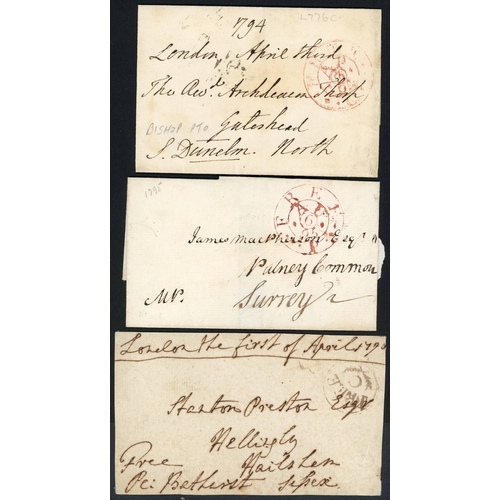 1794
L776C
London April third
The Revd. Archdeacon Thorp
BISHOP PTO
Gateshead
S. Dunelm. North
1795
FREE
James MacPherson Esqr
Putney Common
MP.
Surrey
London the first of April 1790
Stanton Preston Esqr
Hellingly
Free Hailsham
Pc: Bathurst Sussex